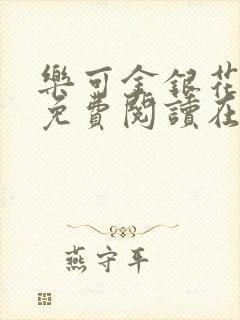 樂可金銀花
免費閱讀在
燕守平